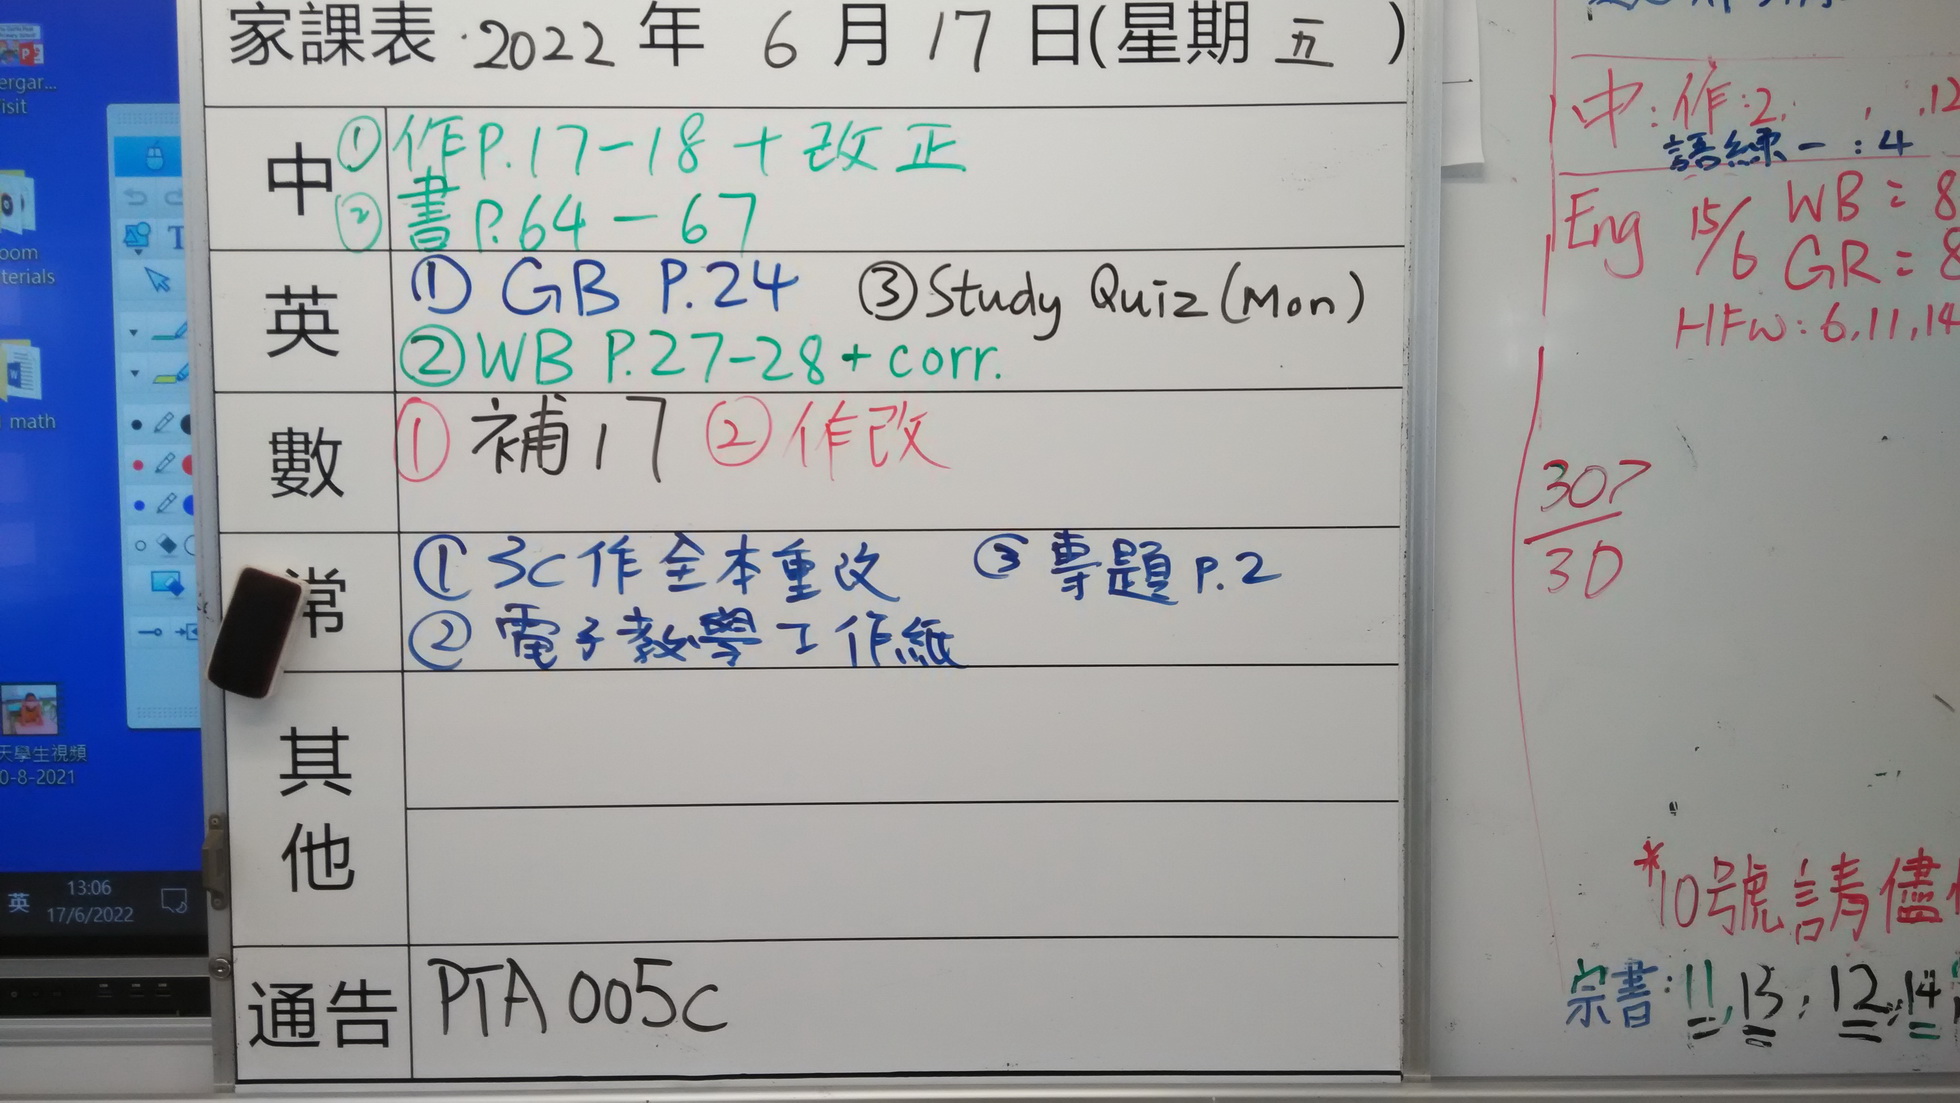 家課表 2022 年 6 月 17 日(星期 五 )
中
① 作P.17-18 + 改正
② 書P.64-67
英
① GB P.24 ③ Study Quiz (Mon)
② WB P.27-28 + corr.
數
① 補17 ② 作改
常
① 3C作全本重改 ③ 專題 P.2
② 電子教學工作紙
其他
通告
PTA 005C
中:作:2, , ,12
語練一:4
Eng 15/6 WB = 8
GR = 8
HFW: 6,11,14
307
30
*10號請儘
宗書: 11,13, 12,14
ergar...
isit
oom
terials
math
天學生視頻
0-8-2021
英
13:06
17/6/2022